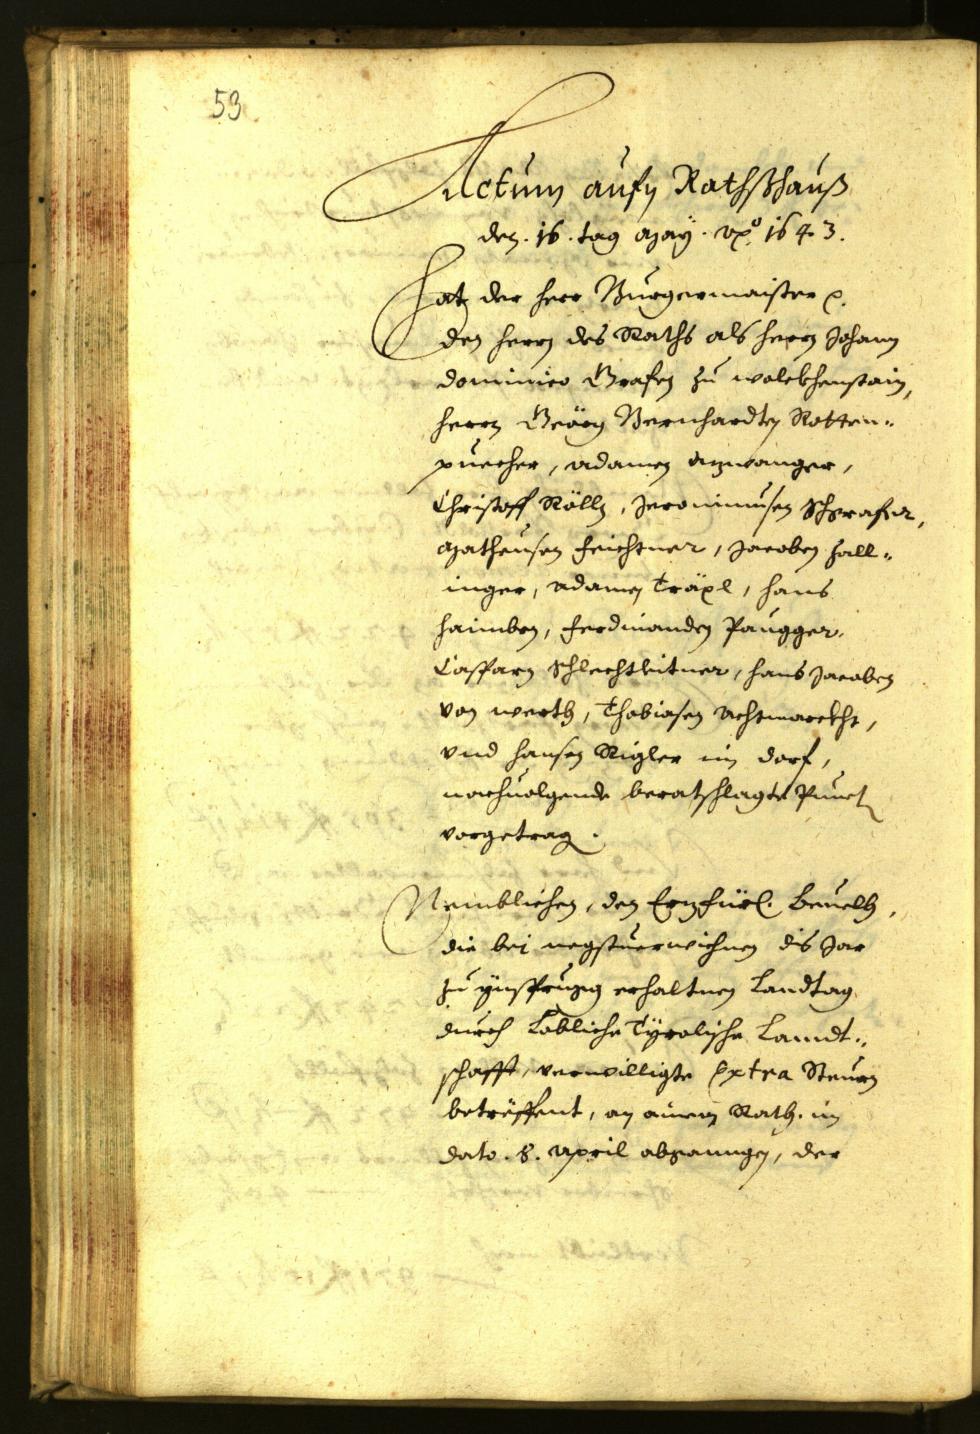 53
Actum aufn Rathßhauß
den .16. tag May. Ao. 1643.
Hat der herr Burgermaister
den herrn des Raths als herrn Johann
Dominico Grafen zu Wolckhenstain,
herrn Geörg Bernhardten Rotten-
puecher, Adamen Anzwanger,
Christoff Röllz, Jeronimusen Schgrafer,
Matheusen Feichtner, Jacoben Hall-
inger, Adamen Träxl, Hans
Haimben, Ferdinanden Paugger,
Casparn Schlechtleitner, Hans Jacoben
von Werth, Thobiasen Achtmarckht,
vnd Hansen Rigler im dorf,
nachuolgende beratschlagte Punct
vorgetrag.
Nemblichen, den Erzfürl. beuelh,
die bei negstuerwichnen dis Jar
zu Ynsprugg erhaltnen Landtag
durch Lobliche Tyrolische Landt-
schafft, verwilligte Extra Steurn
betreffent, an ainem Rath. in
dato .8. April abgangen, der